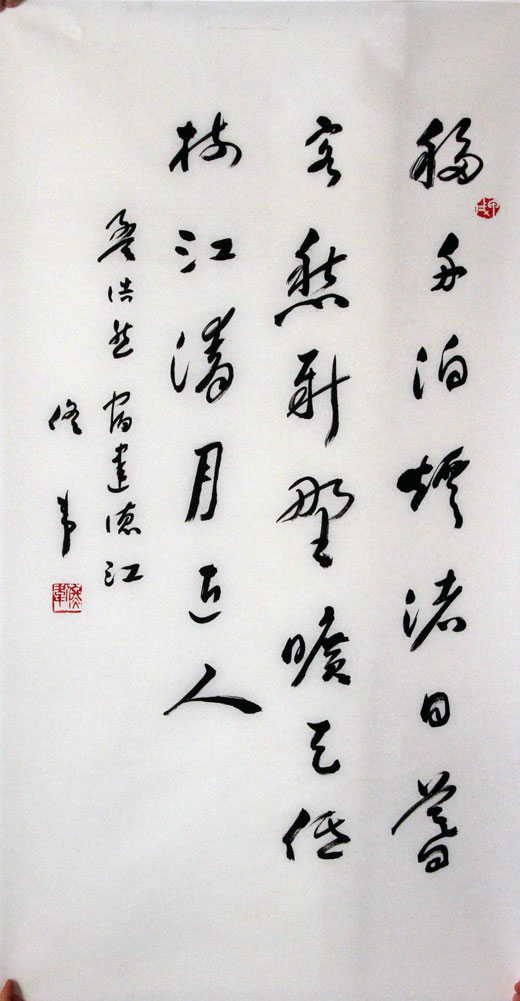 移舟泊煙渚日暮
客愁新野曠天低
樹江清月近人
孟浩然宿建德江
佟韋